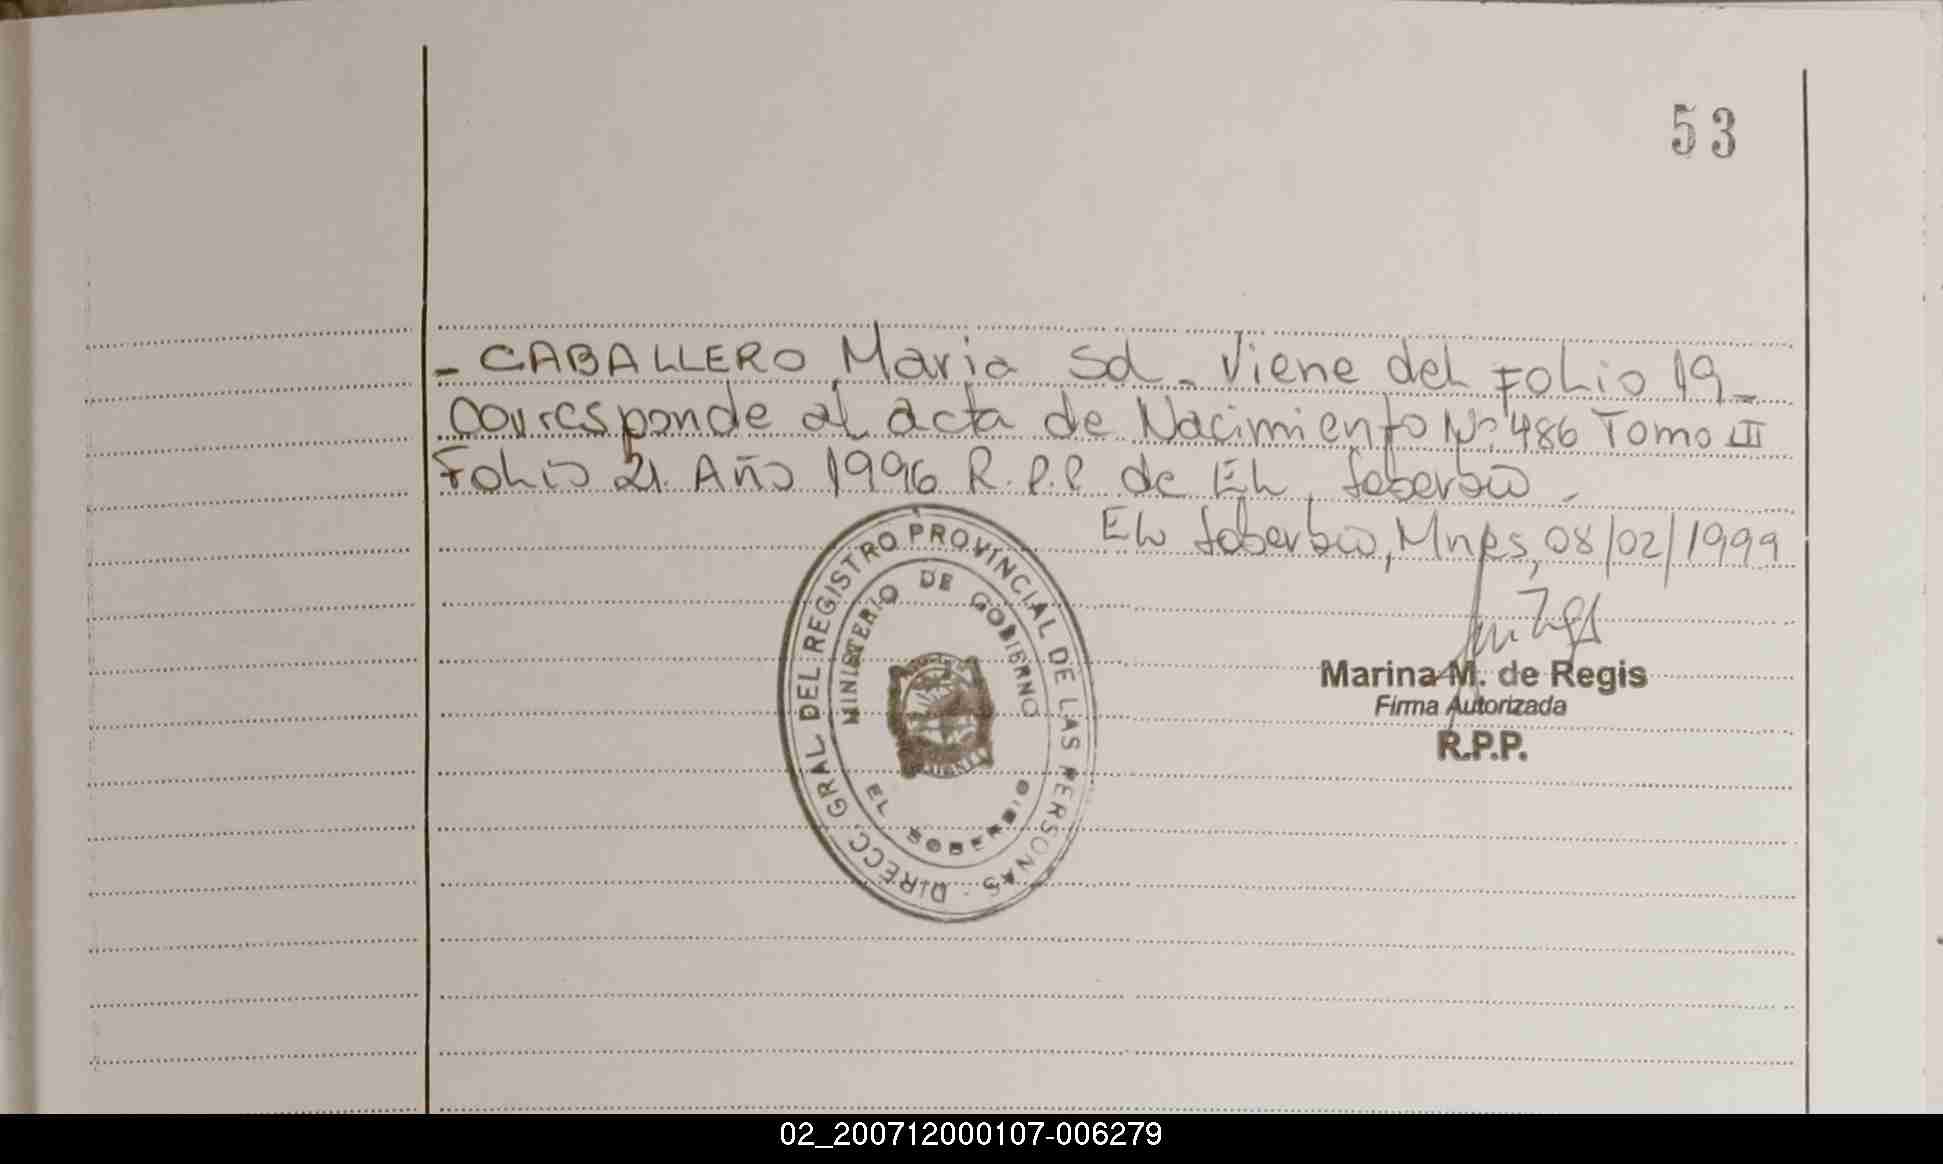 53
- CABALLERO Maria Sd - Viene del Folio 19 -
Corresponde al acta de Nacimiento Nº 486 Tomo III
Folio 21. Año 1996 R.P.P de El Soberbio -
El Soberbio, Mnes, 08/02/1999
DIRECC. GRAL DEL REGISTRO PROVINCIAL DE LAS PERSONAS
MINISTERIO DE GOBIERNO
EL SOBERBIO
Marina M. de Regis
Firma Autorizada
R.P.P.
02_200712000107-006279